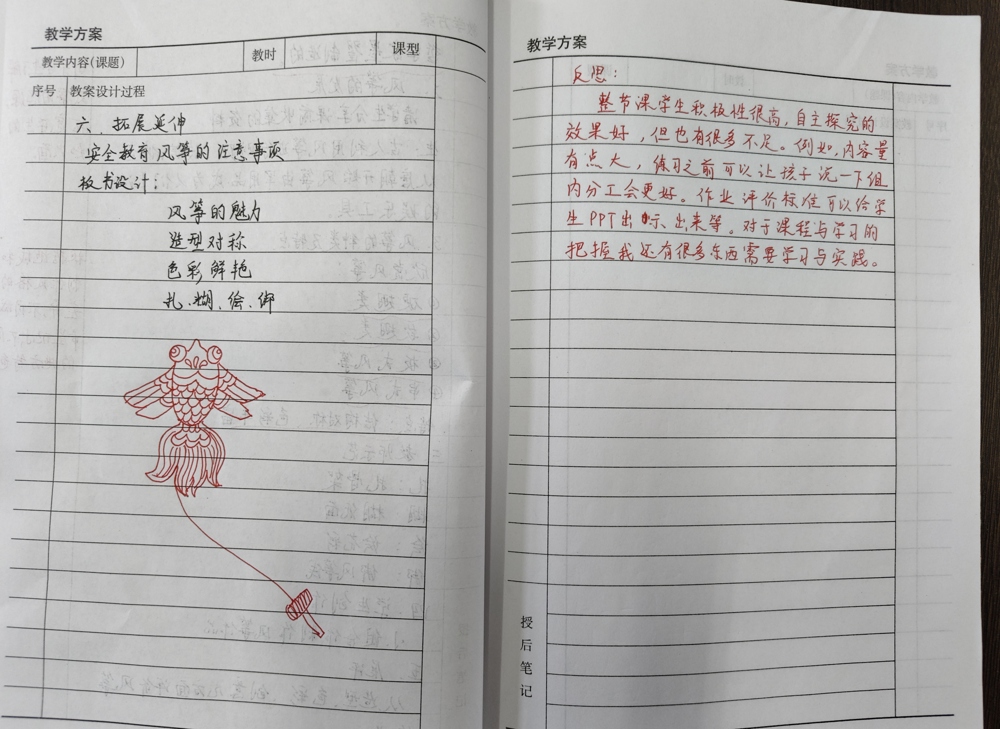 教学方案
教学内容(课题) 教时 课型
序号 教案设计过程
六、拓展延伸
安全教育 风筝的注意事项
板书设计：
风筝的魅力
造型对称
色彩鲜艳
扎、糊、绘、
教学方案
反思：
整节课学生积极性很高，自主探究的
效果好，但也有很多不足。例如，内容量
有点大，练习之前可以让孩子说一下组
内分工会更好。作业评价标准可以给学
生PPT出示出来等。对于课程与学习的
把握我还有很多东西需要学习与实践。
授后笔记